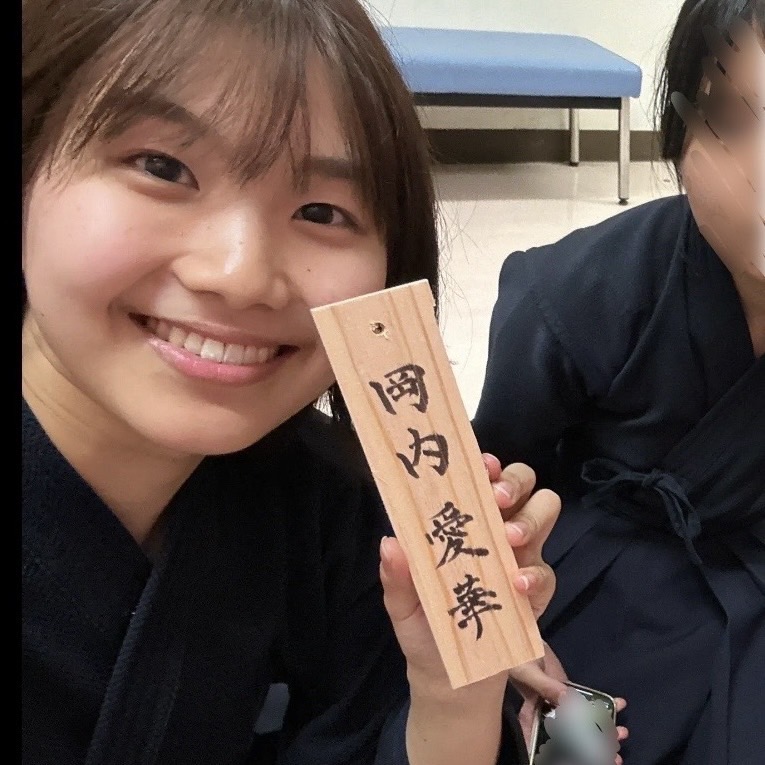 岡内愛華